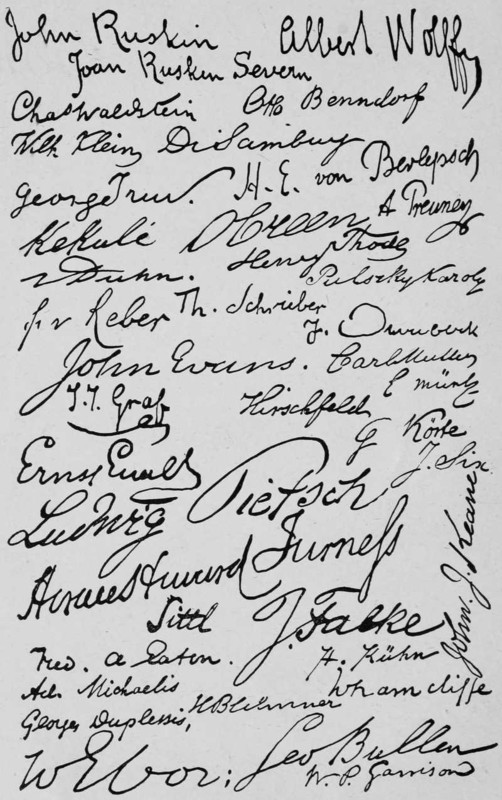 John Ruskin
Albert Wolff
Joan Ruskin Severn
Chas Waldstein
Otto Benndorf
Wilh Klein
Di Sambuy
George Treu.
H. E. von Berlepsch
A Preuner
Kekulé
Henry Thode
v Duhn.
Pulszky Karoly
Fr v Reber
Th. Schreiber
J. Overbeck
John Evans.
Carl Müller
E müntz
T. T. Graf
Hirschfeld
G Körte
J. Six
Ernst Ewald
Ludwig Pietsch
Horace Howard Furness
John. J. Keane
Sittl
J. Falke
Fred. a Eaton.
H. Kühn
Ad. Michaelis
Wharncliffe
Georges Duplessis,
H Blümner
Geo Bullen
W. P. Garrison